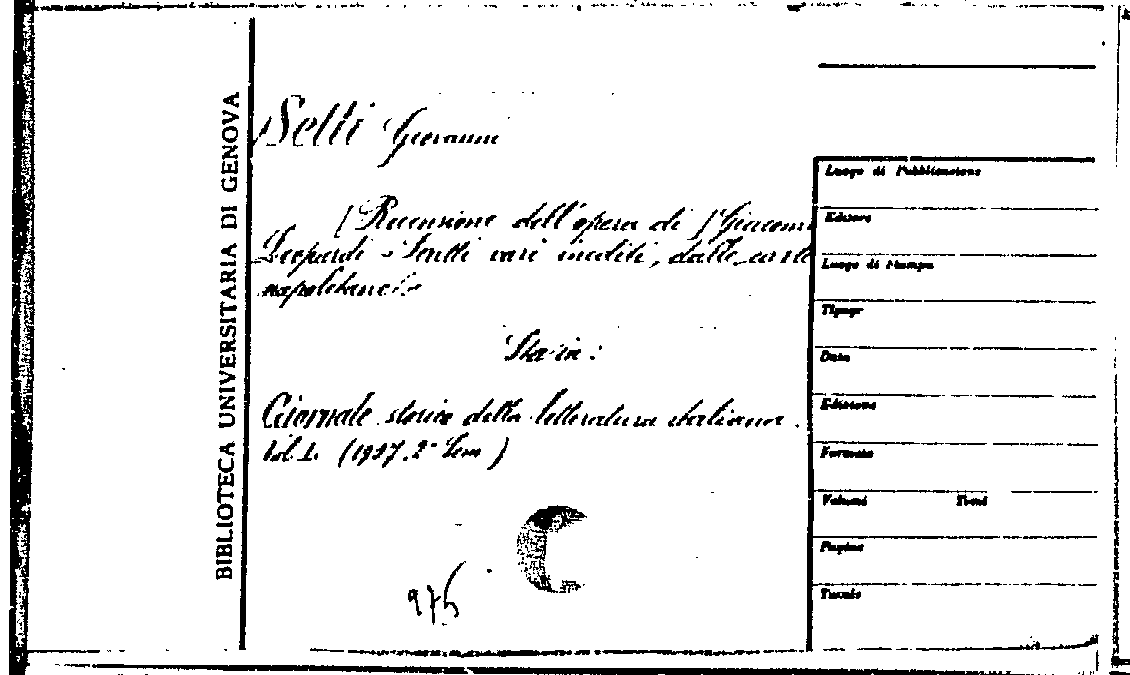 BIBLIOTECA UNIVERSITARIA DI GENOVA
Setti Giovanni
[Recensione dell'opera di] Giacomo
Leopardi - Scritti vari inediti, dalle carte
napoletane.
Sta in:
Giornale storico della letteratura italiana.
Vol. L. (1907, 2° Sem)
Luogo di Pubblicazione
Editore
Luogo di Stampa
Tipogr
Data
Edizione
Formato
Volumi Tomi
Pagine
Tavole